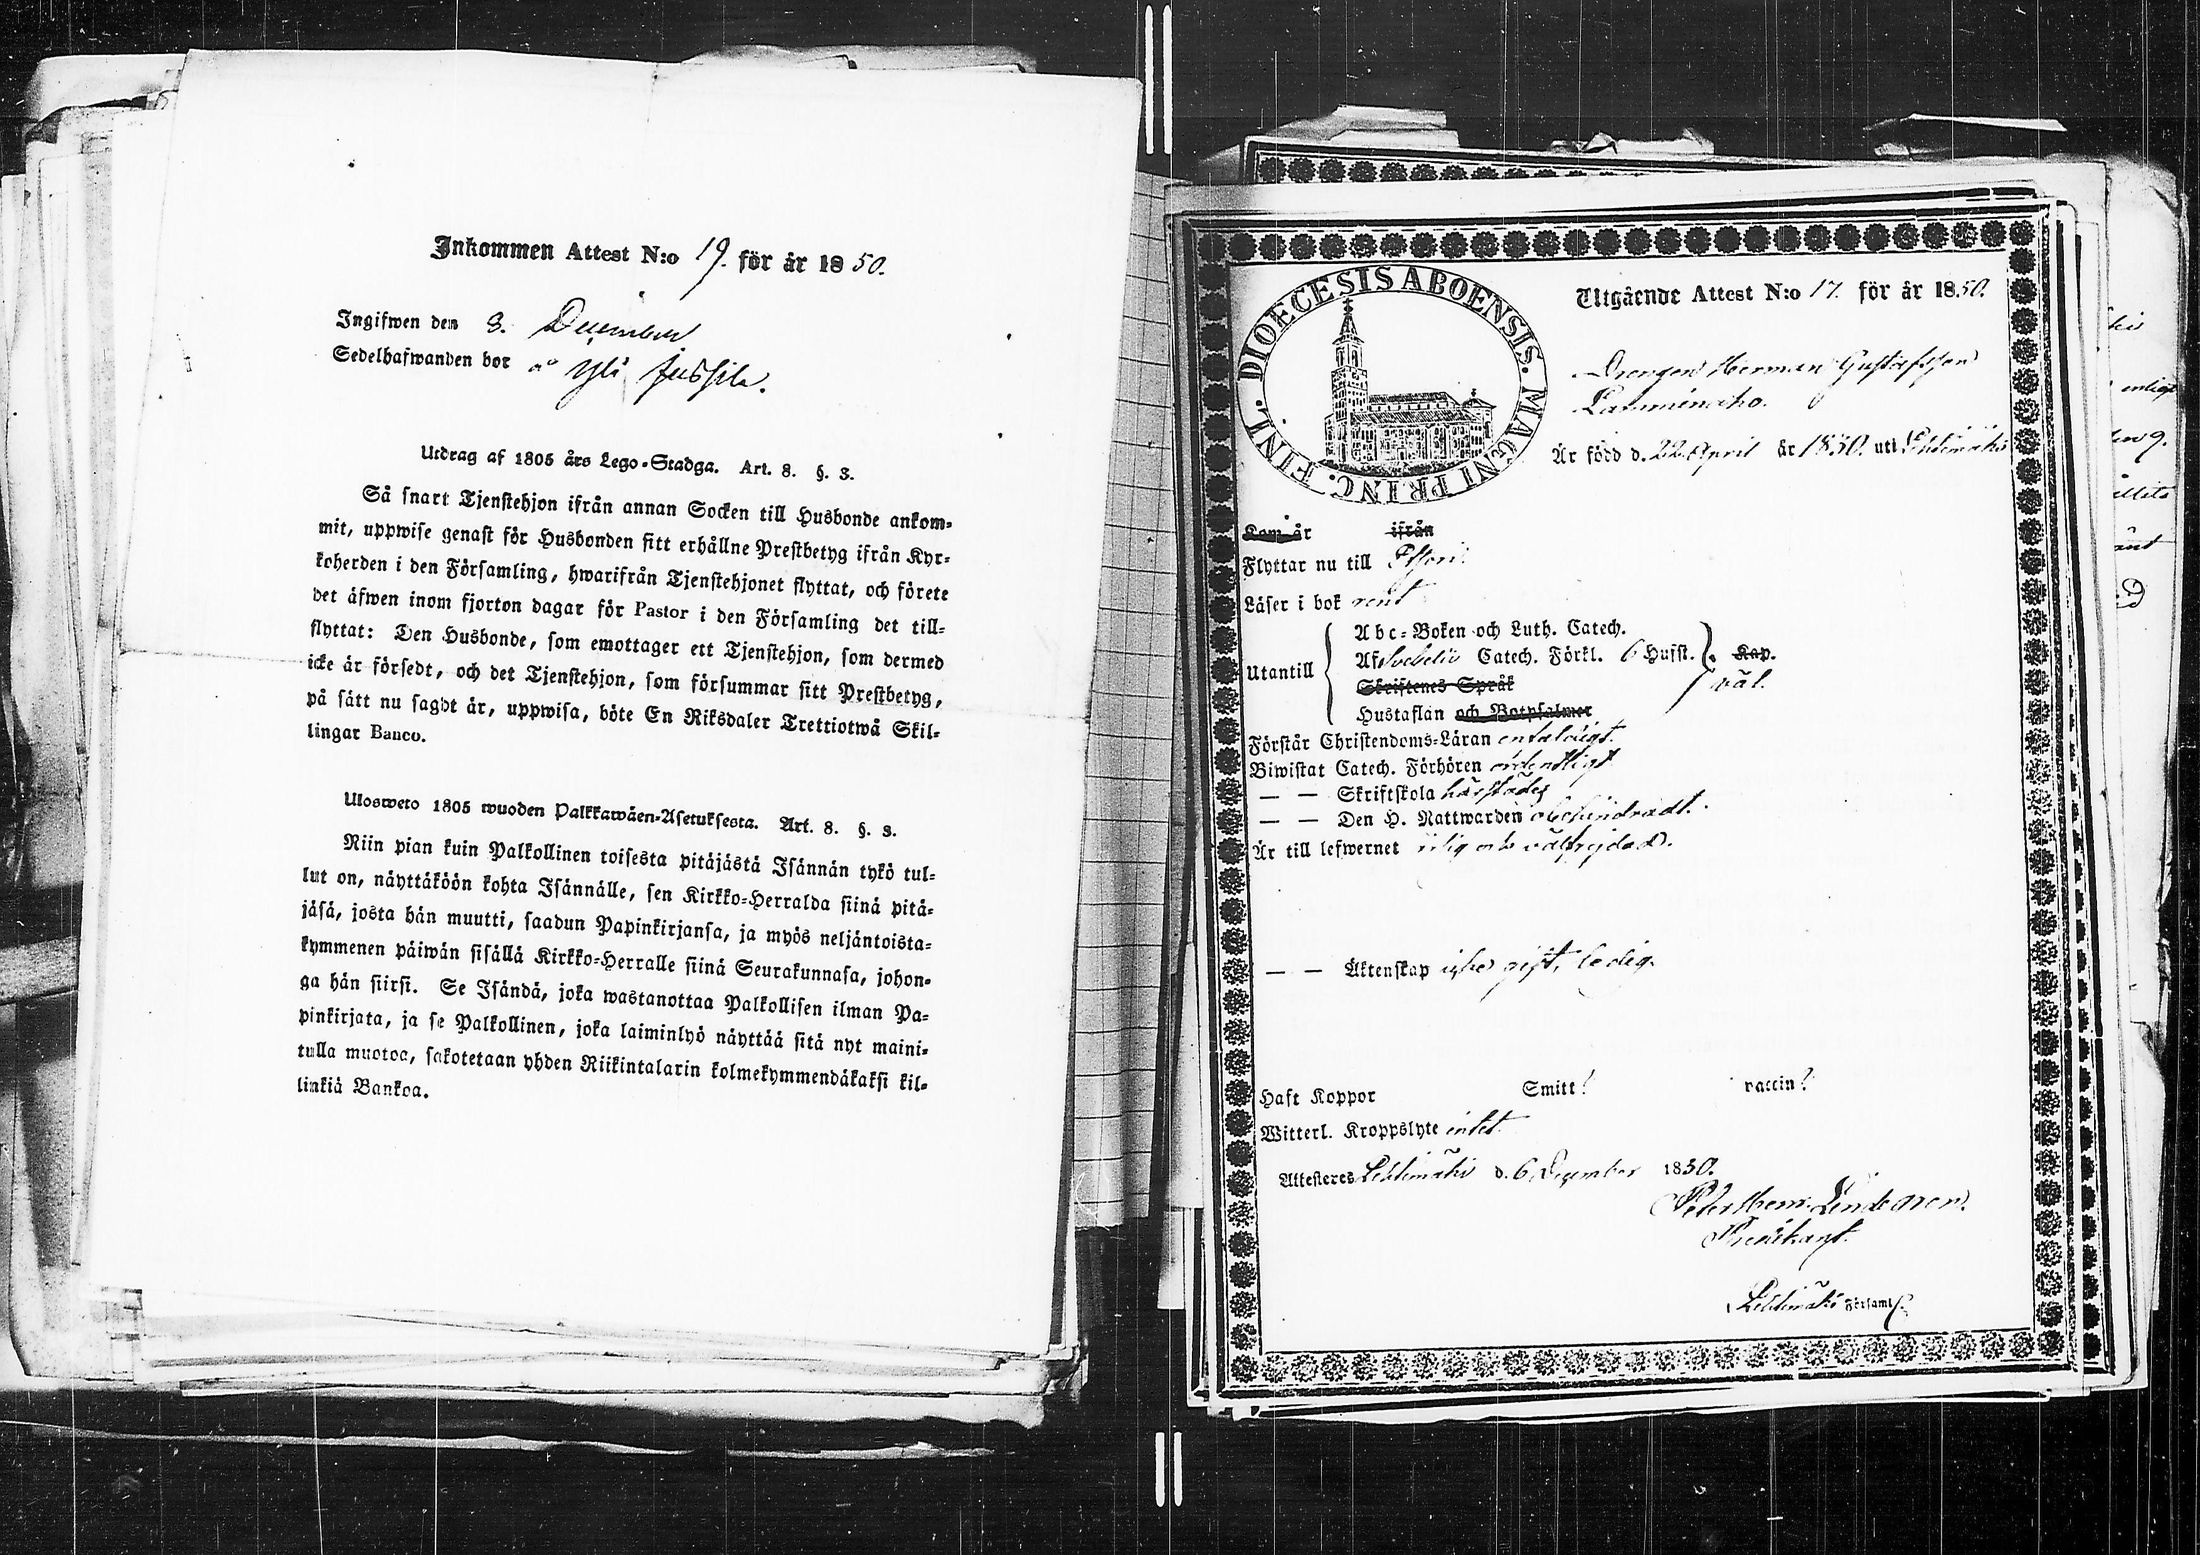 Inkommen Attest N:o 19. för år 1850.
Ingifwen den 8. December
Sedelhafwanden bor å Yli Jussila.
Utdrag af 1805 års Lego-Stadga. Art. 8. §. 3.
Så snart Tjenstehjon ifrån annan Socken till Husbonde ankom-
mit, uppwise genast för Husbonden sitt erhållne Prestbetyg ifrån Kyr-
koherden i den Församling, hwarifrån Tjenstehjonet flyttat, och förete
det äfwen inom fjorton dagar för Pastor i den Församling det till-
flyttat: Den Husbonde, som emottager ett Tjenstehjon, som dermed
icke är försedt, och det Tjenstehjon, som försummar sitt Prestbetyg,
på sätt nu sagdt är, uppwisa, böte En Riksdaler Trettiotwå Skil-
lingar Banco.
Ulosweto 1805 wuoden Palkkawäen-Asetuksesta. Art. 8. §. 3.
Niin pian kuin Palkollinen toisesta pitäjästä Isännän tykö tul-
lut on, näyttäköön kohta Isännälle, sen Kirkko-Herralda siinä pitä-
jäsä, josta hän muutti, saadun Papinkirjansa, ja myös neljäntoista-
kymmenen päiwän sisällä Kirkko-Herralle siinä Seurakunnasa, johon-
ga hän siirsi. Se Isändä, joka wastanottaa Palkollisen ilman Pa-
pinkirjata, ja se Palkollinen, joka laiminlyö näyttää sitä nyt maini-
tulla muotoa, sakotetaan yhden Riikintalarin kolmekymmendäkaksi kil-
linkiä Bankoa.
DIOECESIS ABOENSIS. MAGNI PRINC. FINL.
Utgående Attest N:o 17. för år 1850.
Drengen Herman Gustafsson
Lamminaho.
Är född d. 22 April år 1830. uti Lehtimäki
Kom år ifrån
Flyttar nu till
Läser i bok rent
Utantill
Abc-Boken och Luth. Catech.
Af Svebelii Catech. Förkl. 6 Hufst. Kap.
Skriftenes Språk väl.
Hustaflan och Botpsalmer
Förstår Christendoms-Läran enfaldigt.
Biwistat Catech. Förhören ordentligt
— — Skriftskola härstädes
— — Den H. Nattwarden obehindradt.
Är till lefwernet ärlig och välfrejdad.
— — Äktenskap icke gift, ledig.
Haft Koppor Smitt? vaccin?
Witterl. Kroppslyte intet.
Attesteres Lehtimäki d. 6 December 1850.
Peter Henr. Lindegren.
Predikant.
Lehtimäki Församl.